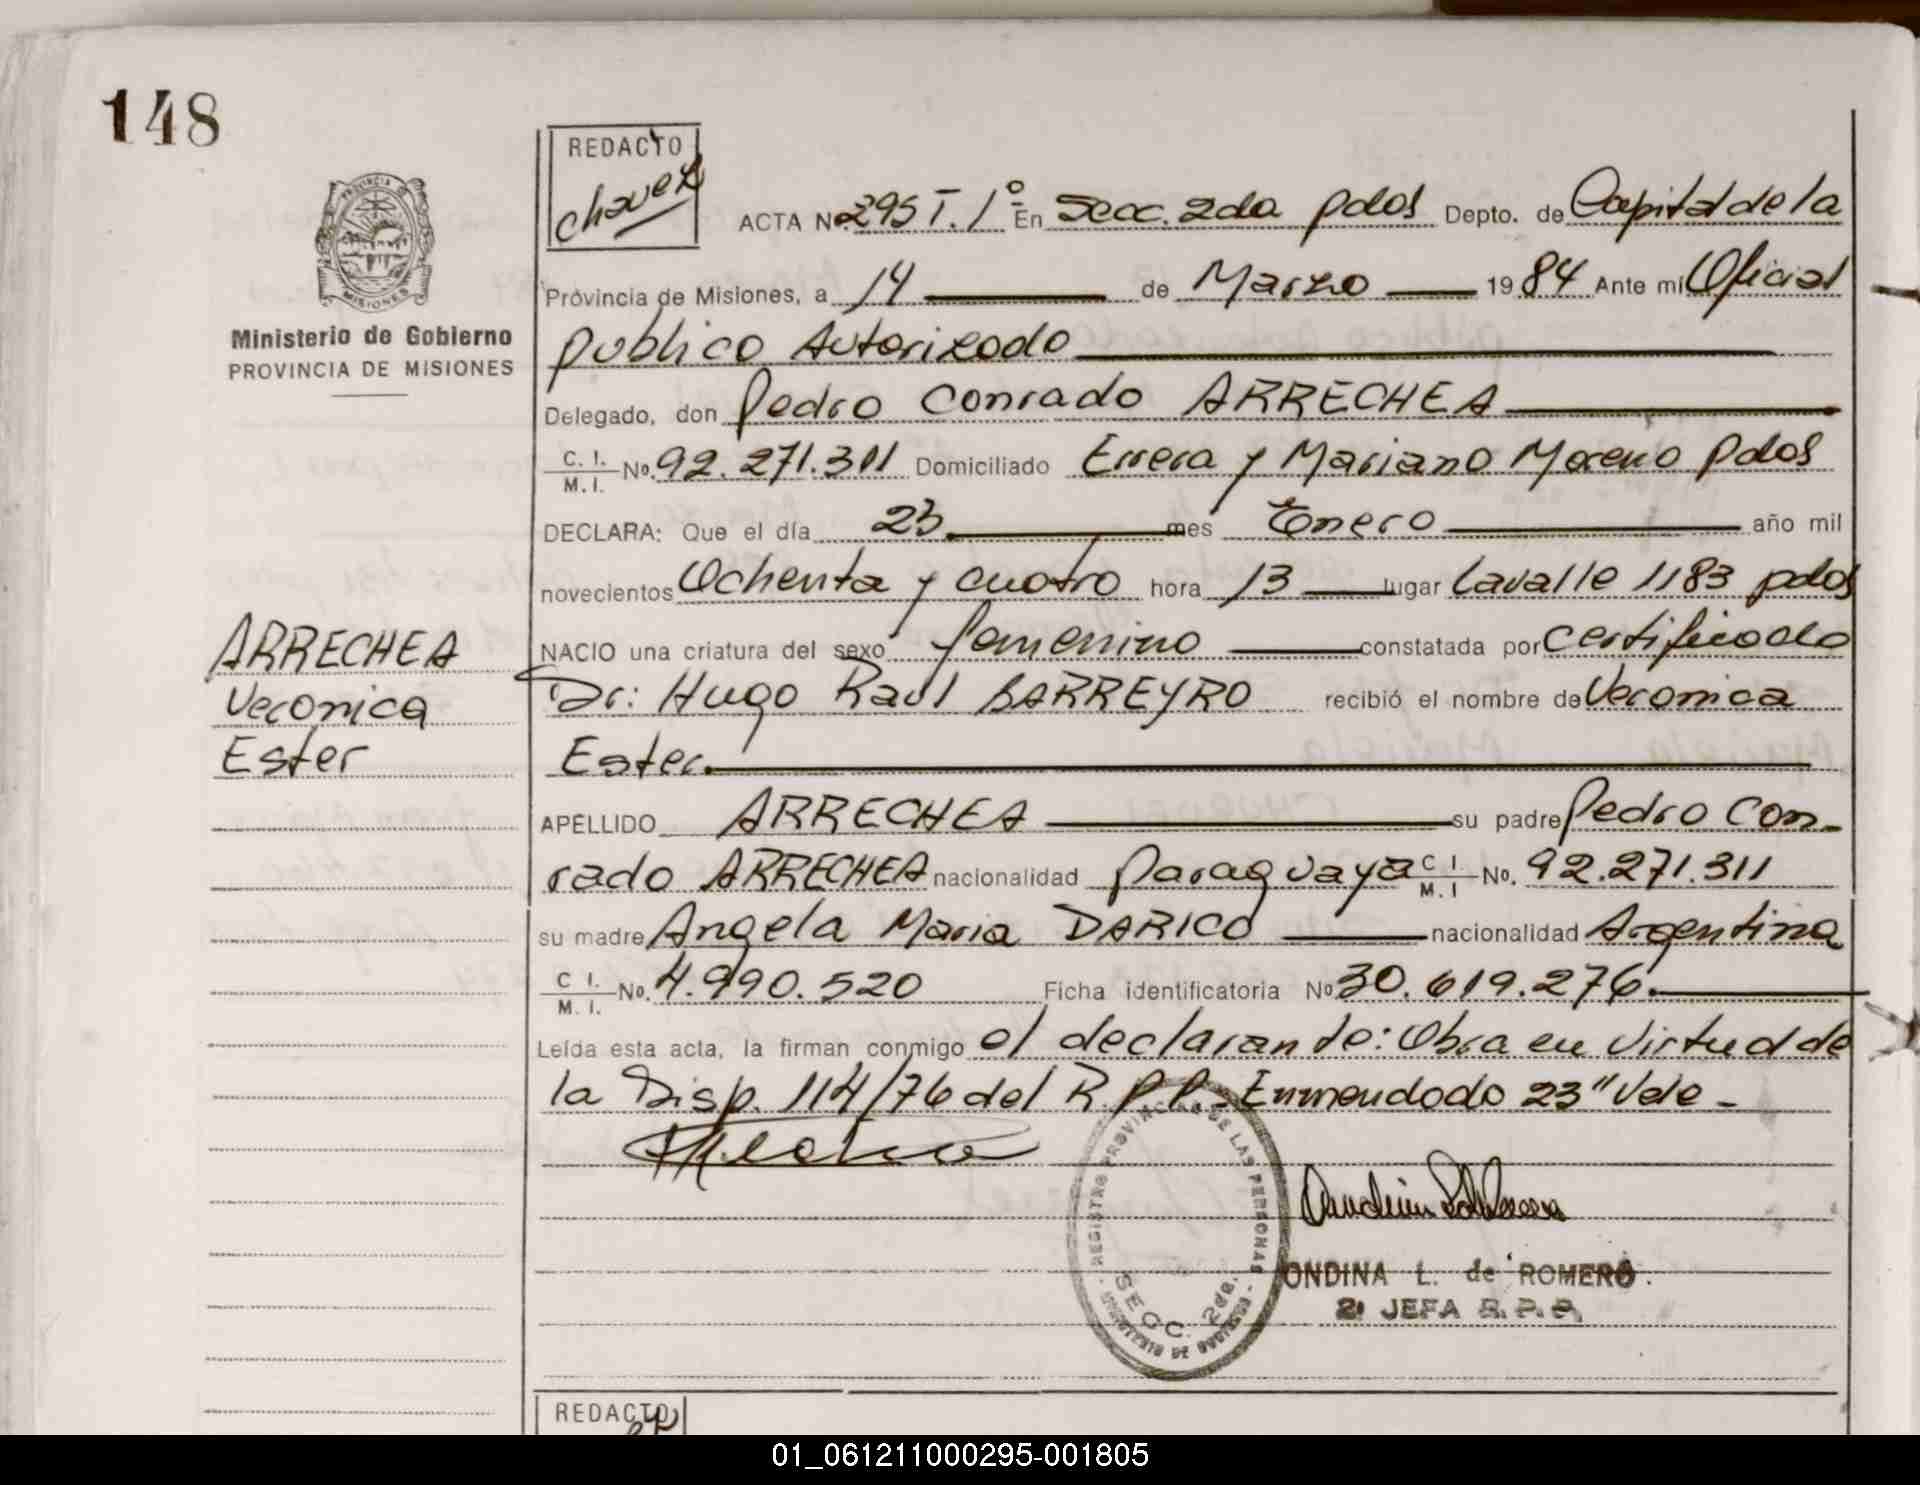 148
REDACTO
chavez
ACTA No. 295 T. 1º En Secc. 2da pdas Depto. de Capital de la
Provincia de Misiones, a 14 de Marzo 1984 Ante mí Oficial
publico Autorizado
Delegado, don Pedro Conrado ARRECHEA
C. I. M. I. No. 92.271.311 Domiciliado Errera y Mariano Moreno Pdas
DECLARA: Que el día 23 mes Enero año mil
novecientos Ochenta y cuatro hora 13 lugar Lavalle 1183 pdas
NACIO una criatura del sexo femenino constatada por certificado
Dr: Hugo Raul BARREYRO recibió el nombre de Veronica
Ester.
APELLIDO ARRECHEA su padre Pedro Con-
rado ARRECHEA nacionalidad Paraguaya C I M. I No. 92.271.311
su madre Angela Maria DARICO nacionalidad Argentina
C I. M. I. No. 4.990.520 Ficha identificatoria No 30.619.276.
Leída esta acta, la firman conmigo el declarante: Obra en virtud de
la Disp. 114/76 del R.P.P. Enmendado 23" Vale -
Ministerio de Gobierno
PROVINCIA DE MISIONES
PROVINCIA D
MISIONES
ARRECHEA
Veronica
Ester
REGISTRO PROVINCIAL DE LAS PERSONAS - MINISTERIO DE GOBIERNO
SECC. 2da.
ONDINA L. de ROMERO.
2ª JEFA R.P.P.
REDACTO
01_061211000295-001805